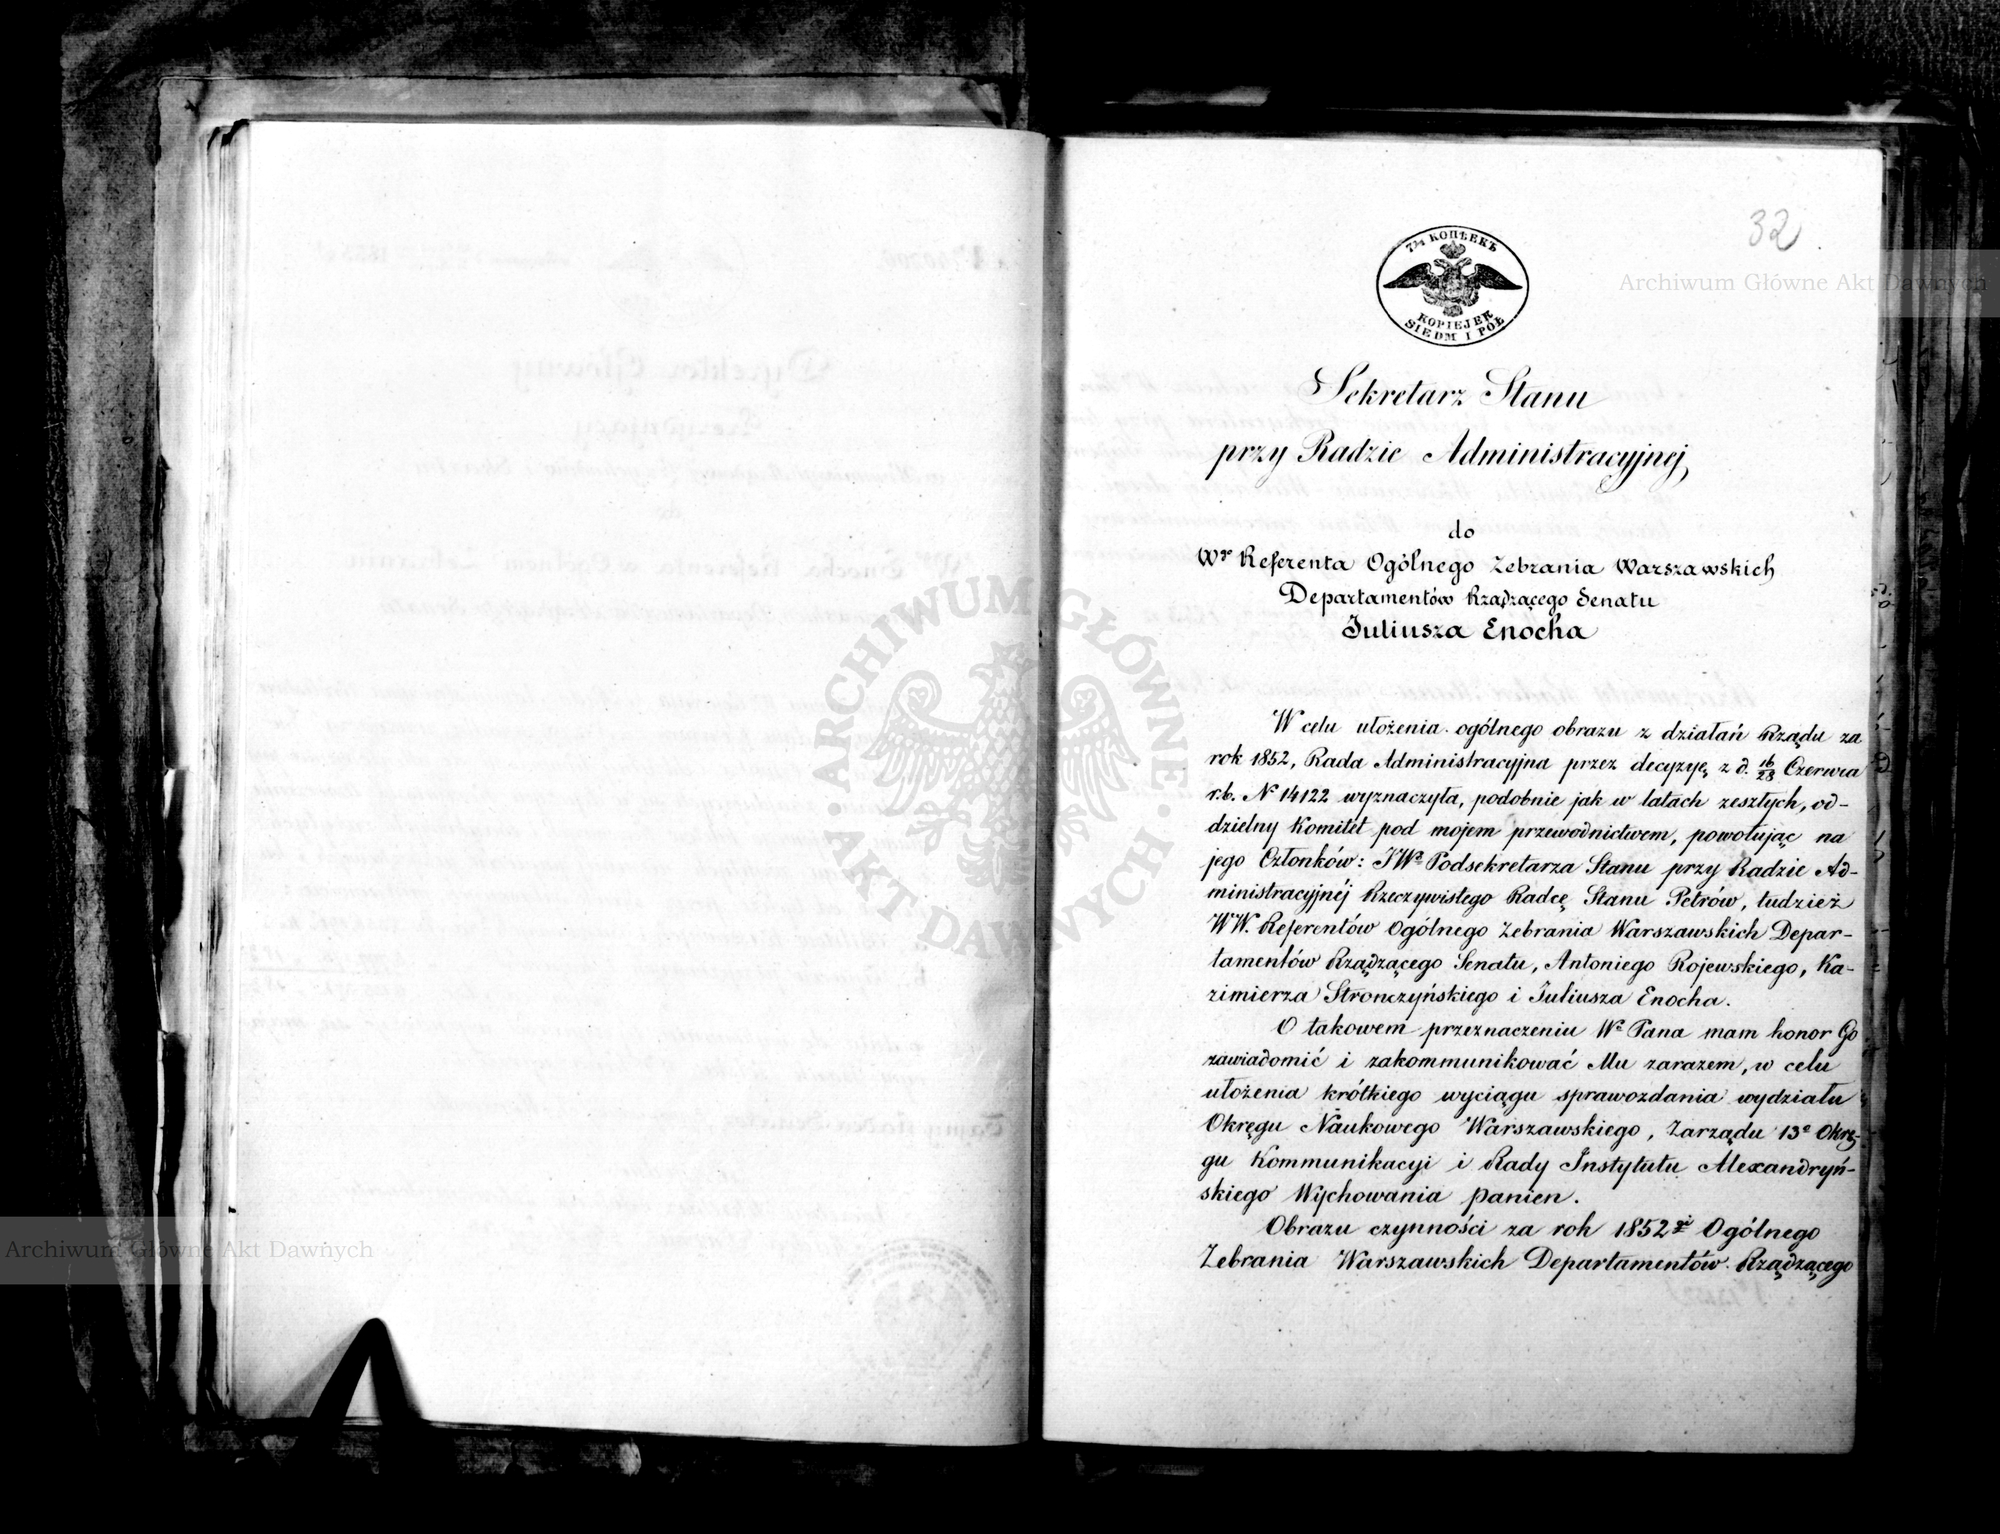 32
7½ КОПѢЕКЪ
KOPIEJEK
SIEDM I PÓŁ
Archiwum Główne Akt Dawnych
Sekretarz Stanu
przy Radzie Administracyjnej
do
Wgo Referenta Ogólnego Zebrania Warszawskich
Departamentów Rządzącego Senatu
Juliusza Enocha
W celu ułożenia ogólnego obrazu z działań Rządu za
rok 1852, Rada Administracyjna przez decyzyę z d. 16/28 Czerwca
r.b. N 14122 wyznaczyła, podobnie jak w latach zeszłych, od-
dzielny Komitet pod mojem przewodnictwem, powołując na
jego Członków: JWo Podsekretarza Stanu przy Radzie Ad-
ministracyjnéj Rzeczywistego Radcę Stanu Petrów, tudzież
WW. Referentów Ogólnego Zebrania Warszawskich Depar-
tamentów Rządzącego Senatu, Antoniego Rojewskiego, Ka-
zimierza Stronczyńskiego i Juliusza Enocha.
O takowem przeznaczeniu Wo Pana mam honor Go
zawiadomić i zakommunikować Mu zarazem, w celu
ułożenia krótkiego wyciągu sprawozdania wydziału
Okręgu Naukowego Warszawskiego, Zarządu 13o Okrę-
gu Kommunikacyi i Rady Instytutu Alexandryń-
skiego Wychowania panien.
Obrazu czynności za rok 1852gi Ogólnego
Zebrania Warszawskich Departamentów Rządzącego
ARCHIWUM GŁÓWNE AKT DAWNYCH
Archiwum Główne Akt Dawnych